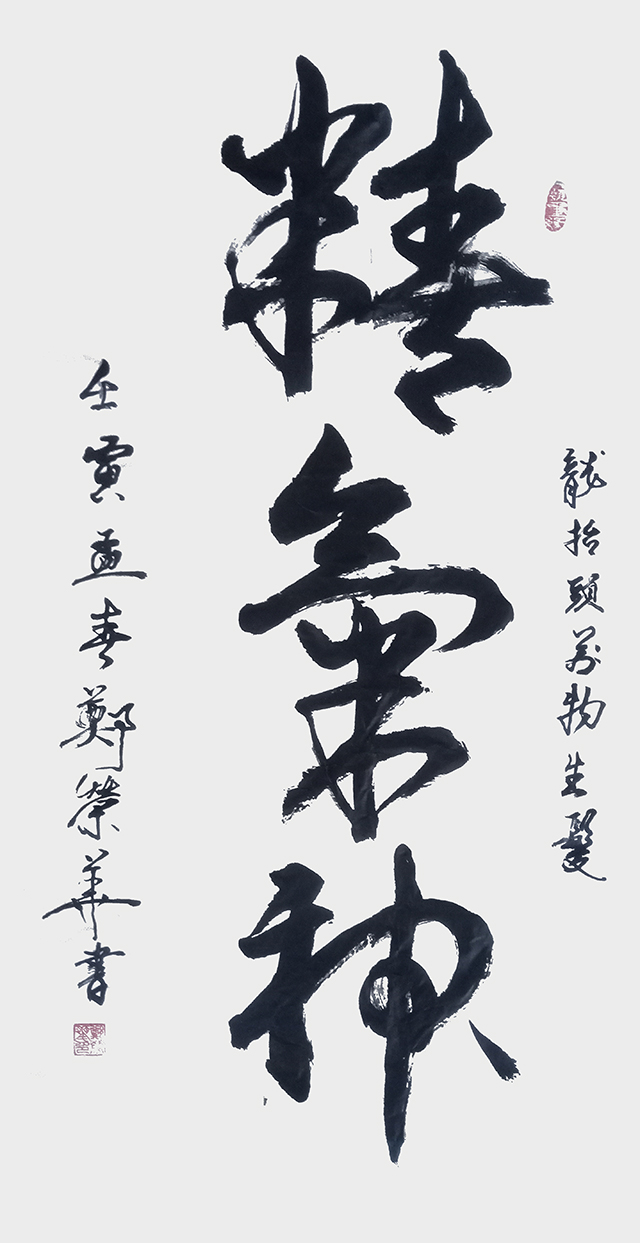 龍抬頭萬物生髮
精氣神
壬寅孟春鄭榮華書